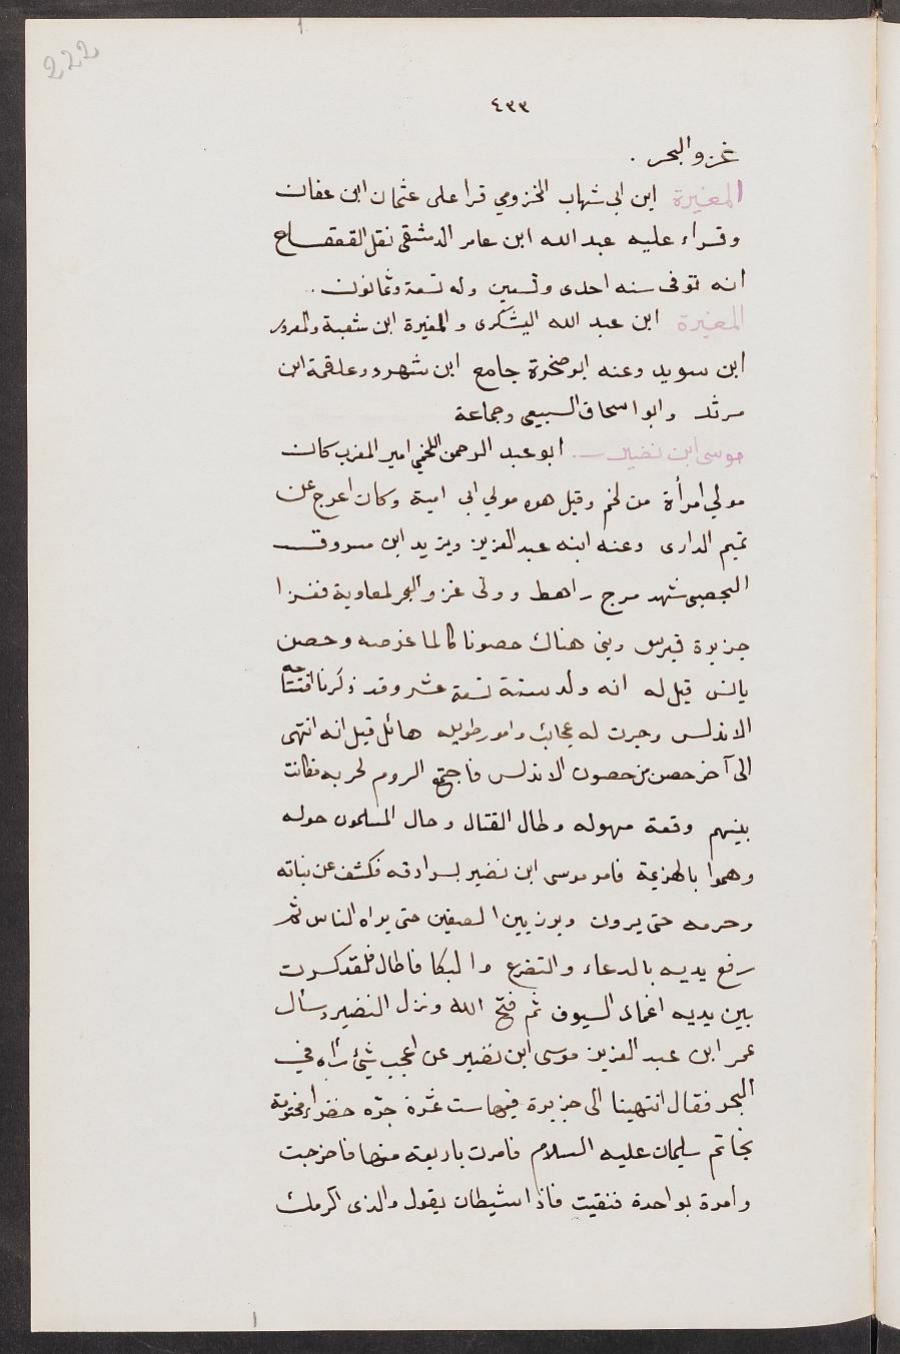 222
٤٣٣
غزو البحر .
المغيرة ابن ابى شهاب المخزومي قرا على عثمان ابن عفان
وقراء عليه عبد الله ابن عامر الدمشقى نقل القعقاع
انه توفى سنه احدى وتسعين وله تسعة وثمانون .
المغيرة ابن عبد الله اليشكرى والمغيرة ابن شعبة والمعرور
ابن سويد وعنه ابو صخرة جامع ابن شهرد وعلقمة ابن
مرثد وابو اسحاق السبيعى وجماعة
موسى ابن نضير . ابو عبد الرحمن اللخمي امير المغرب كان
مولي امرأة من لخم وقيل هوه مولي ابى امية وكان اعرج عن
تميم الدارى وعنه ابنه عبد العزيز ويزيد ابن مسروق
اليحصبى شهد مرج راهط وولى غزو البحر لمعاوية فغزا
جزيرة قبرس وبنى هناك حصونا كالماغوصه وحصن
يانس قيل له انه ولد سنة تسعة عشر وقد ذكرنا افتتاحه
الاندلس وجرت له عجائب وامور طويله هائل قيل انه انتهى
الى آخر حصن من حصون الاندلس فاجتمع الروم لحربه فكانت
بينهم وقعة مهوله وطال القتال وحال المسلمون حوله
وهموا بالهزيمة فامر موسى ابن نضير بسرادقه فكشف عن بناته
وحرمه حتى يرون وبرز بين الصفين حتى يراه الناس ثم
رفع يديه بالدعاء والتضرع والبكا فاطال فلقد كسرت
بين يديه اغماد السيوف ثم فتح الله ونزل النضير وسأل
عمر ابن عبد العزيز موسى ابن نضير عن اعجب شئ رآه في
البحر فقال انتهينا الى جزيرة فيها ست عشرة جرّه خضراء مختومة
بخاتم سليمان عليه السلام فامرت باربعته منها فاخرجت
وامرة بواحدة فنقبت فاذا شيطان يقول والذى اكرمك